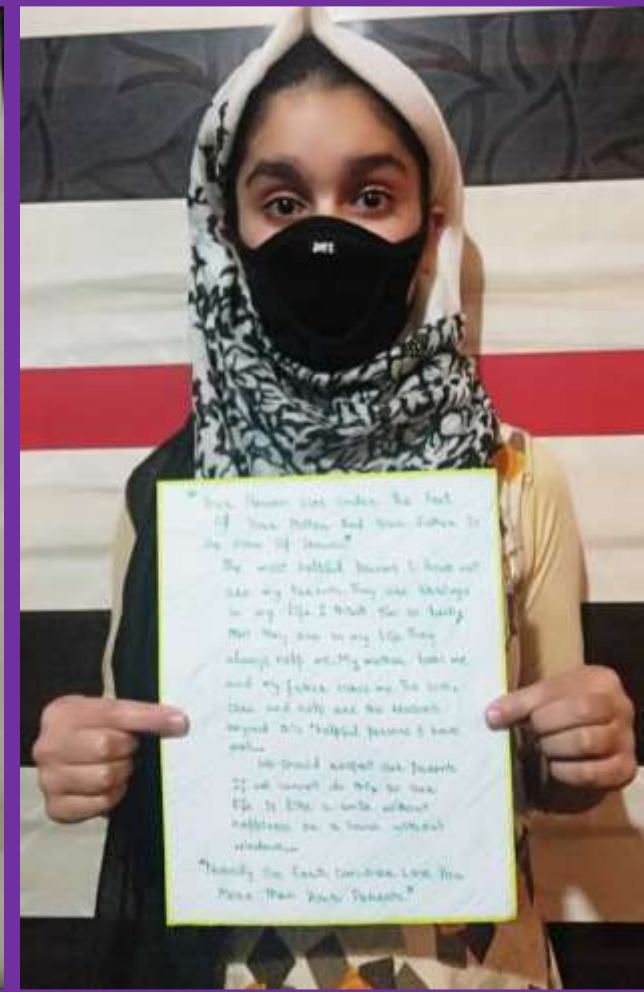 "Your Heaven Lies Under The Feet
Of Your Mother And Your Father Is
the Door Of Heaven"
The most helpful persons I have met
are my parents. They are blessings
in my life. I think I'm so lucky
that they are in my life. They
always help me. My mother
and my father The love,
Care and are the reasons
beyond this "helpful persons I have
met...
We should respect our parents
If we cannot do this so our
life is like a smile without
happiness or a house without
windows...
"Nobody On Earth Can Ever Love You
More Than Your Parents"